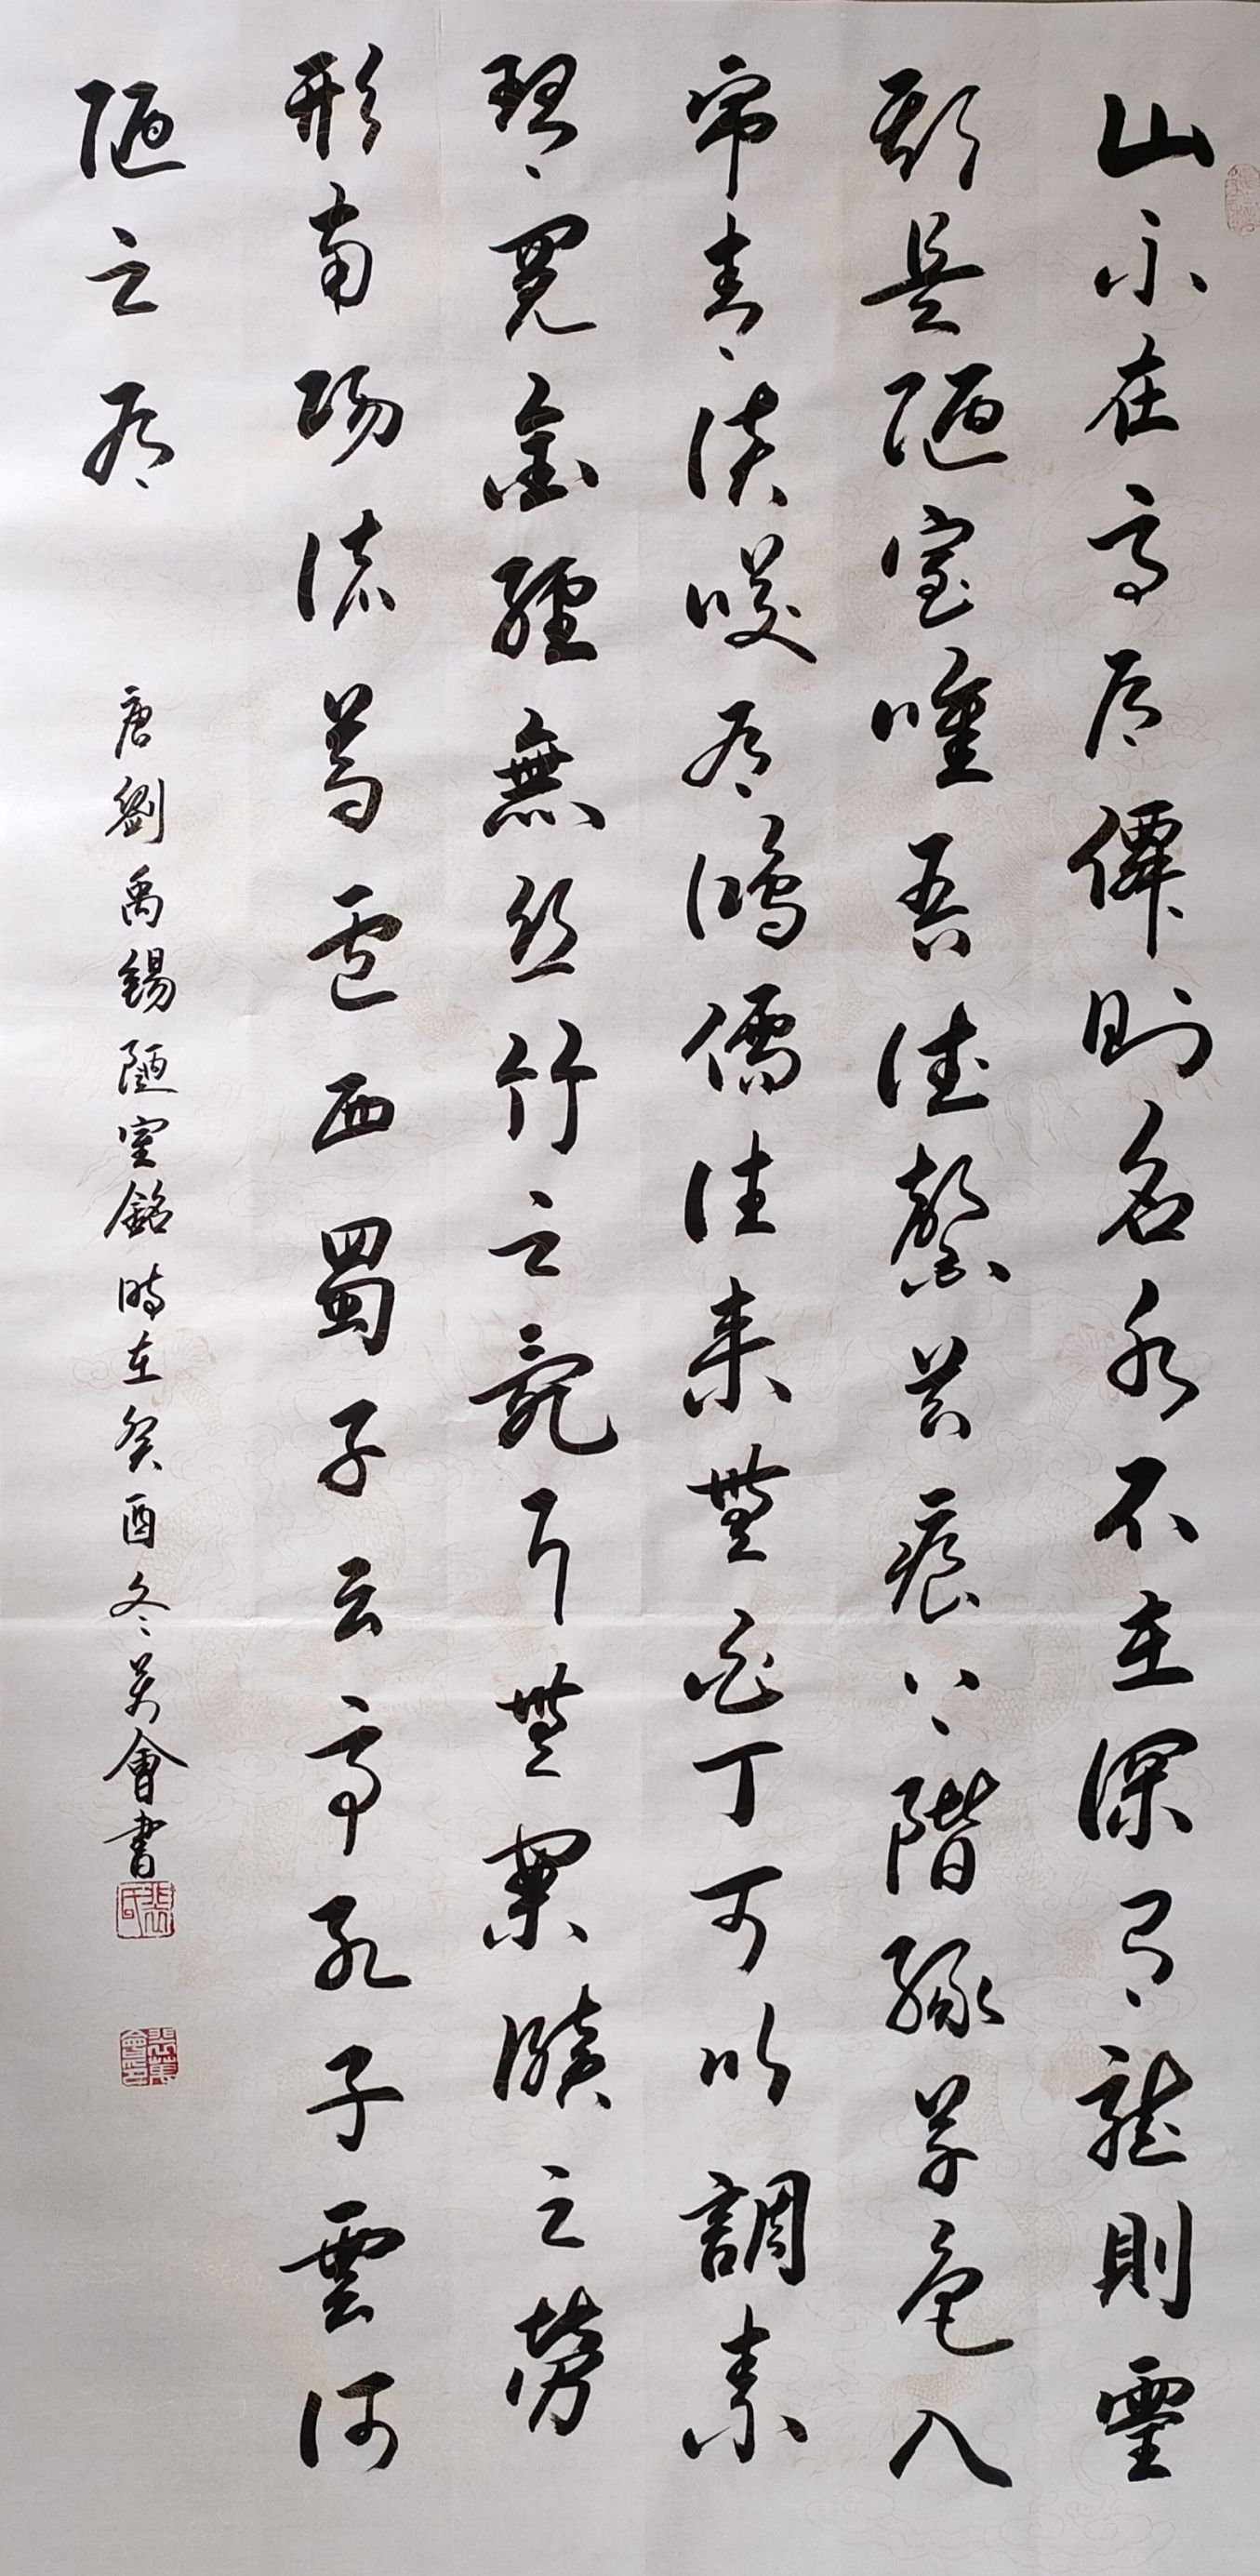 山不在高有僊則名水不在深有龍則靈
斯是陋室唯吾德馨苔痕上階緑草色入
帘青談咲有鴻儒往来無白丁可以調素
琴閲金經無絲竹之亂耳無案牘之勞
形南陽諸葛廬西蜀子云亭孔子雲何
陋之有
唐劉禹錫陋室銘時在癸酉冬萬會書